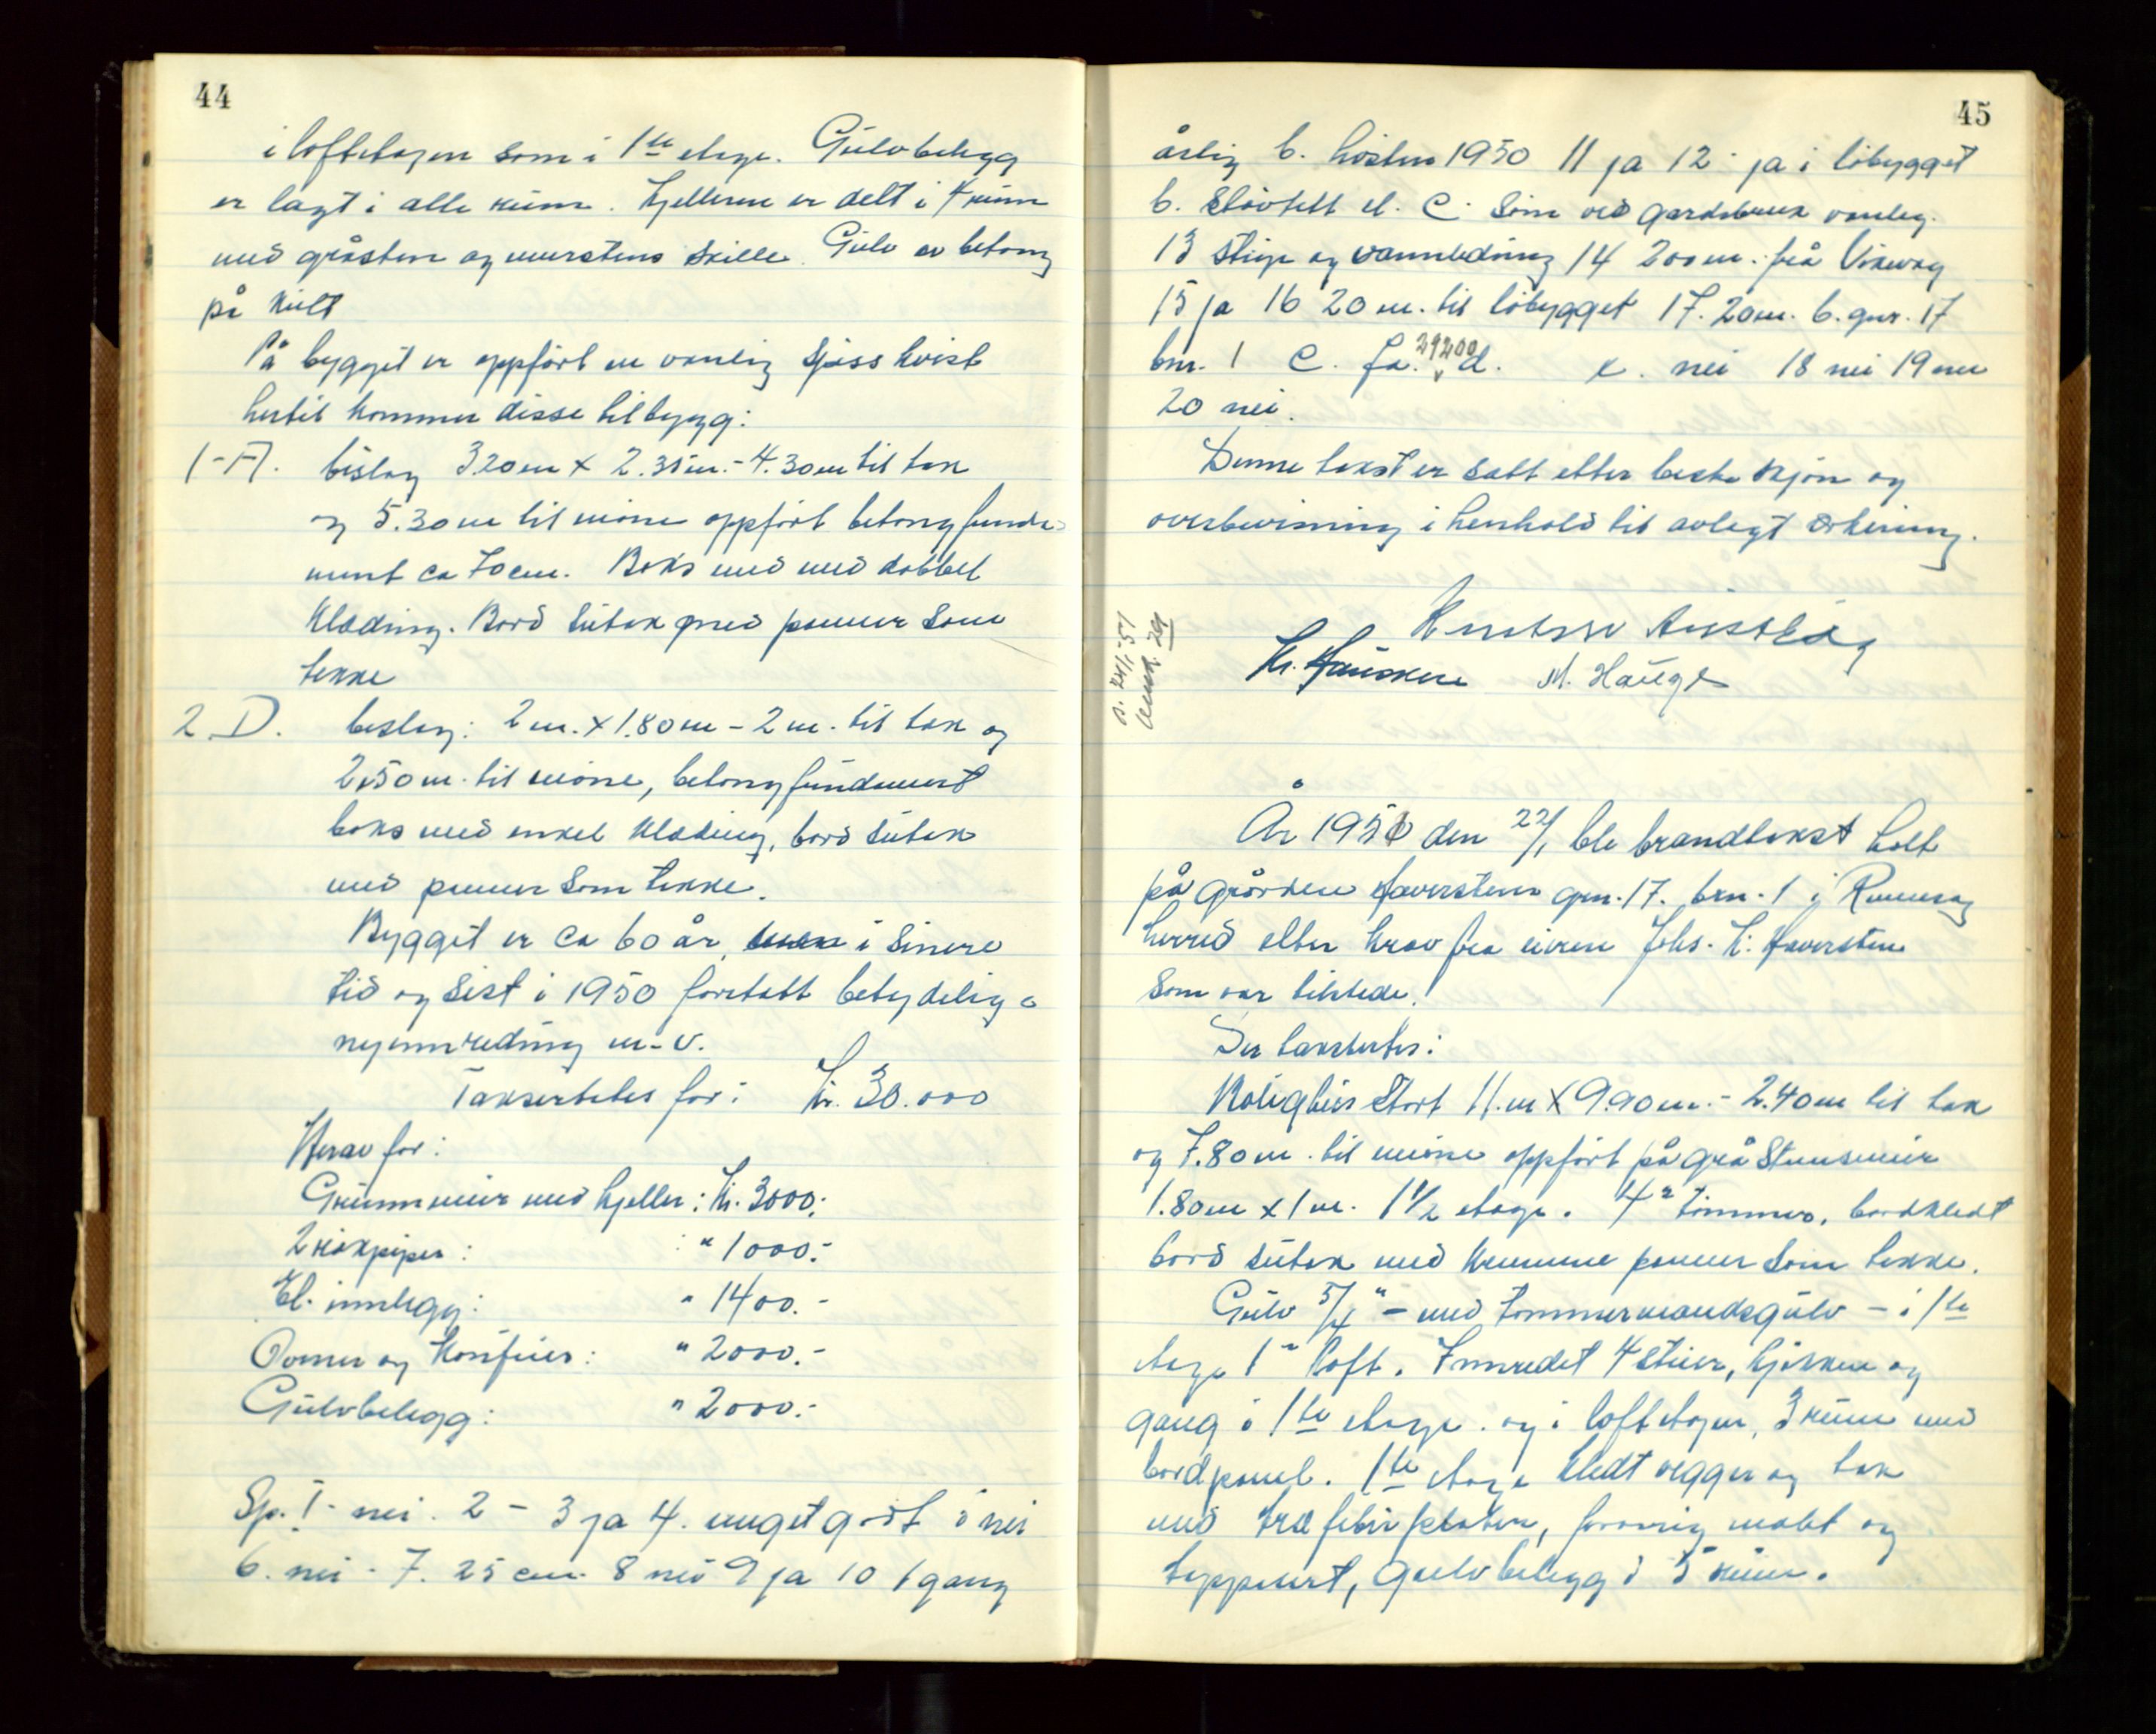 44
i loftetagen som i 1ste etage. Gulvbelegg
er lagt i alle rum. Kjelleren er delt i 4 rum
med gråsten og murstens skille. Gulv av betong
på kult
På bygget er oppført en vanlig spisskvist
hertil kommer disse tilbygg:
1-A. bislag 3.20 m x 2.35 m. - 4.30 m til tak
og 5.30 m til møne oppført betongfunda-
ment ca 70 cm. Boks med med dobbel
klædning. Bord sutak med panner som
tekke
2 D. beslag: 2 m. x 1.80 m - 2 m. til tak og
2,50 m. til møne, betongfundament
boks med enkel klædning, bord sutak
med panner som tekke.
Bygget er ca 60 år, i sinere
tid og sist i 1950 foretatt betydelig
nyinnredning m.v.
Taksertetes for: kr. 30.000
Herav for:
Grunnmur med kjeller: kr. 3000.-
2 rökpiper: " 1000.-
El. innlegg: " 1400.-
Ovner og Komfuer: " 2000.-
Gulvbelegg: " 2000.-
Sp. 1 - nei. 2 - 3 ja 4. meget godt 5 nei
6. nei - 7. 25 cm. 8 nei 9 ja 10 1 gang
45
årlig b. høsten 1950 11 ja 12 ja i löbygget
b. el. c. Som ved gardsbruk vanleg.
13 Stige og vannledning 14 200 m. frå
15 ja 16 20 m. til löbygget 17. 20 m. b. gnr. 17
bnr. 1 c. ja. 29200 d. e. nei 18 nei 19
20 nei.
Denne takst er satt etter beste skjön og
overbevisning i henhold til avlegt erklering.
Kr. Hausken M. Hauge
a. 24/1-51
År 1951 den 22/1 ble brandtakst holt
på gården Haversten gnr. 17. brn. 1 i Rennesøy
herred etter krav fra eieren Johs. K. Haversten
som var tilstede.
Der takstertes:
Våligbus Stort 11.m x 9.90 m. - 2.40 m til tak
og 7.80 m. til møne oppført på grå Stensmur
1.80 m x 1 m. 1 1/2 etage. 4" tømmer, bordkledt
bord sutak med krumme panner som tekke.
Gulv 5/4" - med tømmermandsgulv - i 1ste
etage 1" loft. Innredet 4 stuer, kjøkken og
gang i 1ste etage. og i loftetagen, 3 rum med
bordpanel. 1ste etage kledt vegger og tak
med træfiberplater, forøvrig malet og
tappsert, gulvbelegg i 5 rum.